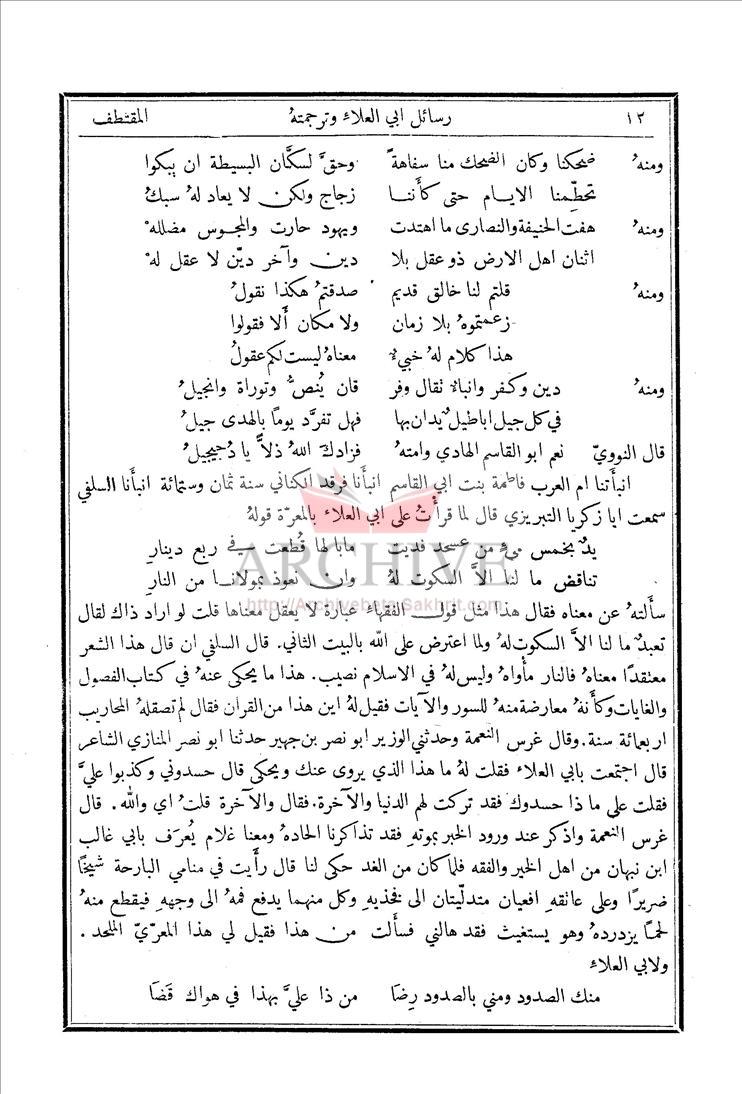 ١٢ رسائل ابي العلاء وترجمتهُ المقتطف
ومنهُ ضحكنا وكان الضحك منا سفاهةً وحقَّ لسكَّان البسيطة ان يبكوا
تحطِّمنا الايام حتى كأننا زجاج ولكن لا يعاد لهُ سبكُ
ومنهُ هفت الحنيفة والنصارى ما اهتدت ويهود حارت والمجوس مضللهْ
اثنان اهل الارض ذو عقل بلا دين وآخر ديّن لا عقل لهْ
ومنهُ قلتم لنا خالق قديم صدقتمُ هكذا نقولُ
زعمتموهُ بلا زمان ولا مكان ألا فقولوا
هذا كلام لهُ خبيءٌ معناهُ ليست لكم عقولُ
ومنهُ دين وكفر وانباءٌ تقال وفر قان يُنصُّ وتوراة وانجيلُ
في كل جيل اباطيلٌ يدان بها فهل تفرَّد يوماً بالهدى جيلُ
قال النوويّ نعم ابو القاسم الهادي وامتهُ فزادك اللهُ ذلاًّ يا دُجيجيلُ
انبأتنا ام العرب فاطمة بنت ابي القاسم انبأنا فرقد الكناني سنة ثمان وستمائة انبأنا السلفي
سمعت ابا زكريا التبريزي قال لما قرأتُ على ابي العلاء بالمعرّة قولهُ
يدٌ بخمس مئ من عسجد فديت ما بالها قُطعت في ربع دينارِ
تناقض ما لنا الاَّ السكوت لهُ وان نعوذ بمولانا من النارِ
سألتهُ عن معناه فقال هذا مثل قول الفقهاء عبارة لا يعقل معناها قلت لو اراد ذاك لقال
تعبدٌ ما لنا الاَّ السكوت لهُ ولما اعترض على الله بالبيت الثاني. قال السلفي ان قال هذا الشعر
معتقدًا معناهُ فالنار مأواه وليس لهُ في الاسلام نصيب. هذا ما يحكى عنهُ في كتاب الفصول
والغايات وكأنهُ معارضة منهُ للسور والآيات فقيل لهُ اين هذا من القرآن فقال لم تصقلهُ المحاريب
اربعمائة سنة. وقال غرس النعمة وحدثني الوزير ابو نصر بن جهير حدثنا ابو نصر المنازي الشاعر
قال اجتمعت بابي العلاء فقلت لهُ ما هذا الذي يروى عنك ويحكى قال حسدوني وكذبوا عليَّ
فقلت على ما ذا حسدوك فقد تركت لهم الدنيا والآخرة. فقال والآخرة قلت اي والله. قال
غرس النعمة واذكر عند ورود الخبر بموتهِ فقد تذاكرنا الحادهُ ومعنا غلام يُعرَف بابي غالب
ابن نبهان من اهل الخير والفقه فلما كان من الغد حكى لنا قال رأيت في منامي البارحة شيخًا
ضريرًا وعلى عاتقهِ افعيان متدلّيتان الى فخذيهِ وكل منهما يدفع فمهُ الى وجههِ فيقطع منهُ
لحمًا يزدردهُ وهو يستغيث فقد هالني فسألت من هذا فقيل لي هذا المعرّيّ الملحد.
ولابي العلاء
منك الصدود ومني بالصدود رِضَا من ذا عليَّ بهذا في هواك قَضَا
ARCHIVE
http://Archivebeta.Sakhrit.com